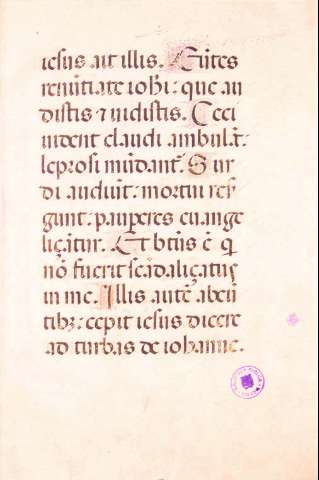 iesus ait illis. Eūtes
renūtiate iohi: que au
distis ⁊ uidistis. Ceci
uident claudi ambulāt:
leprosi mūdant᷑. Sur
di audiūt: mortui res
gunt: pauperes euange
liçātur. Et bt̄us ē q
nō fuerit scādaliçatus
in me. Illis autē abeū
tibꝫ: cepit iesus dicere
ad turbas de iohanne.